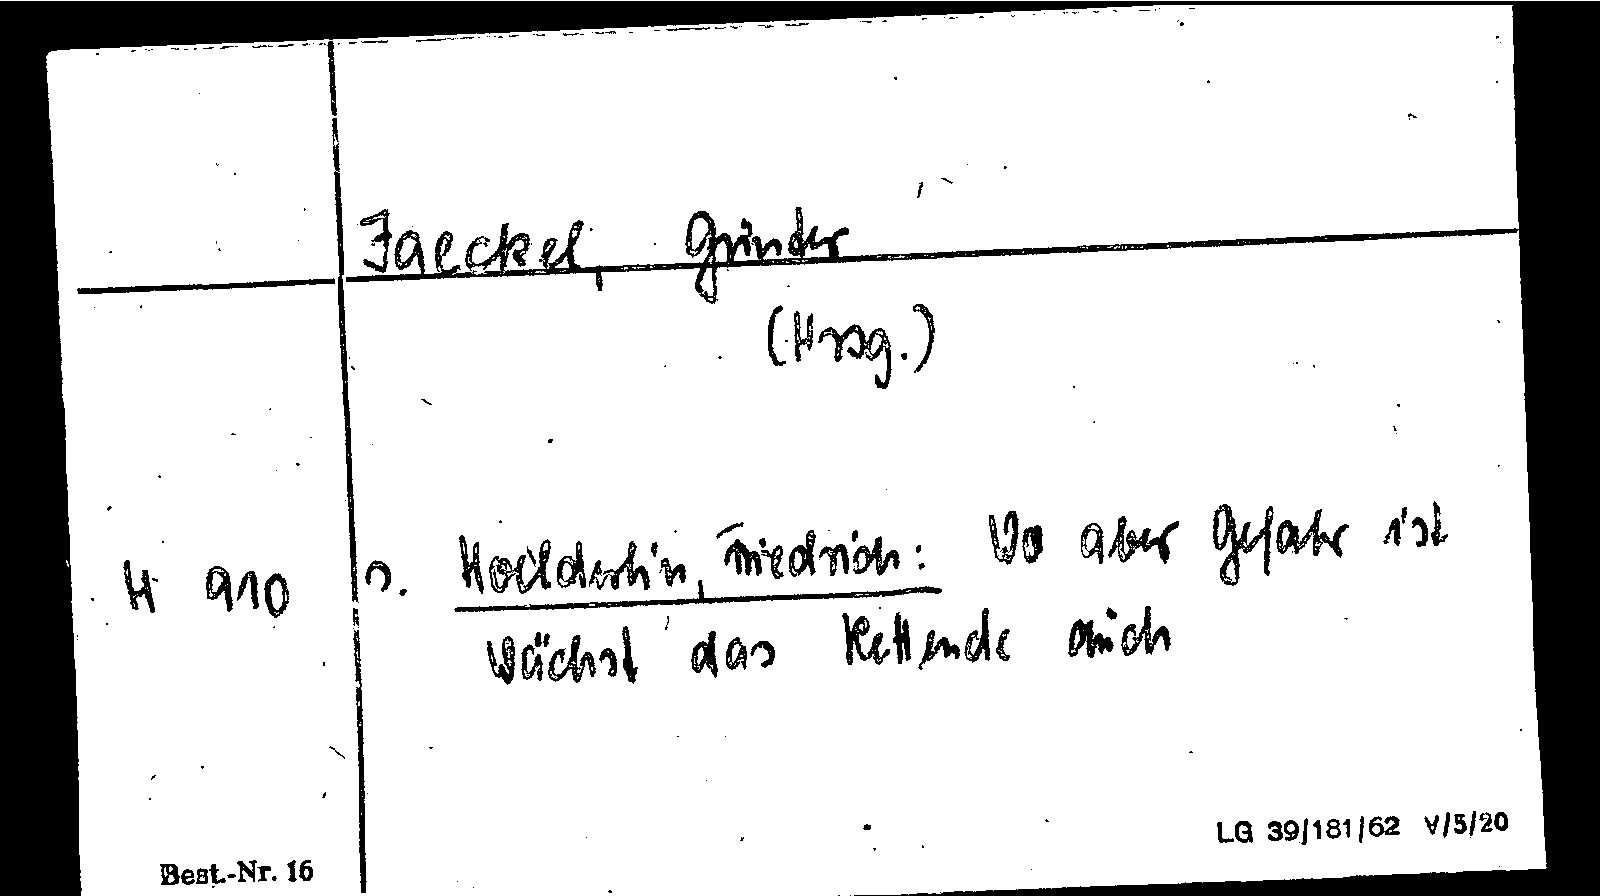 Jaeckel, Günter
(Hrsg.)
H 910 s. Hoelderlin, Friedrich: Wo aber Gefahr ist
wächst das Rettende auch
LG 39/181/62 V/5/20
Best.-Nr. 16